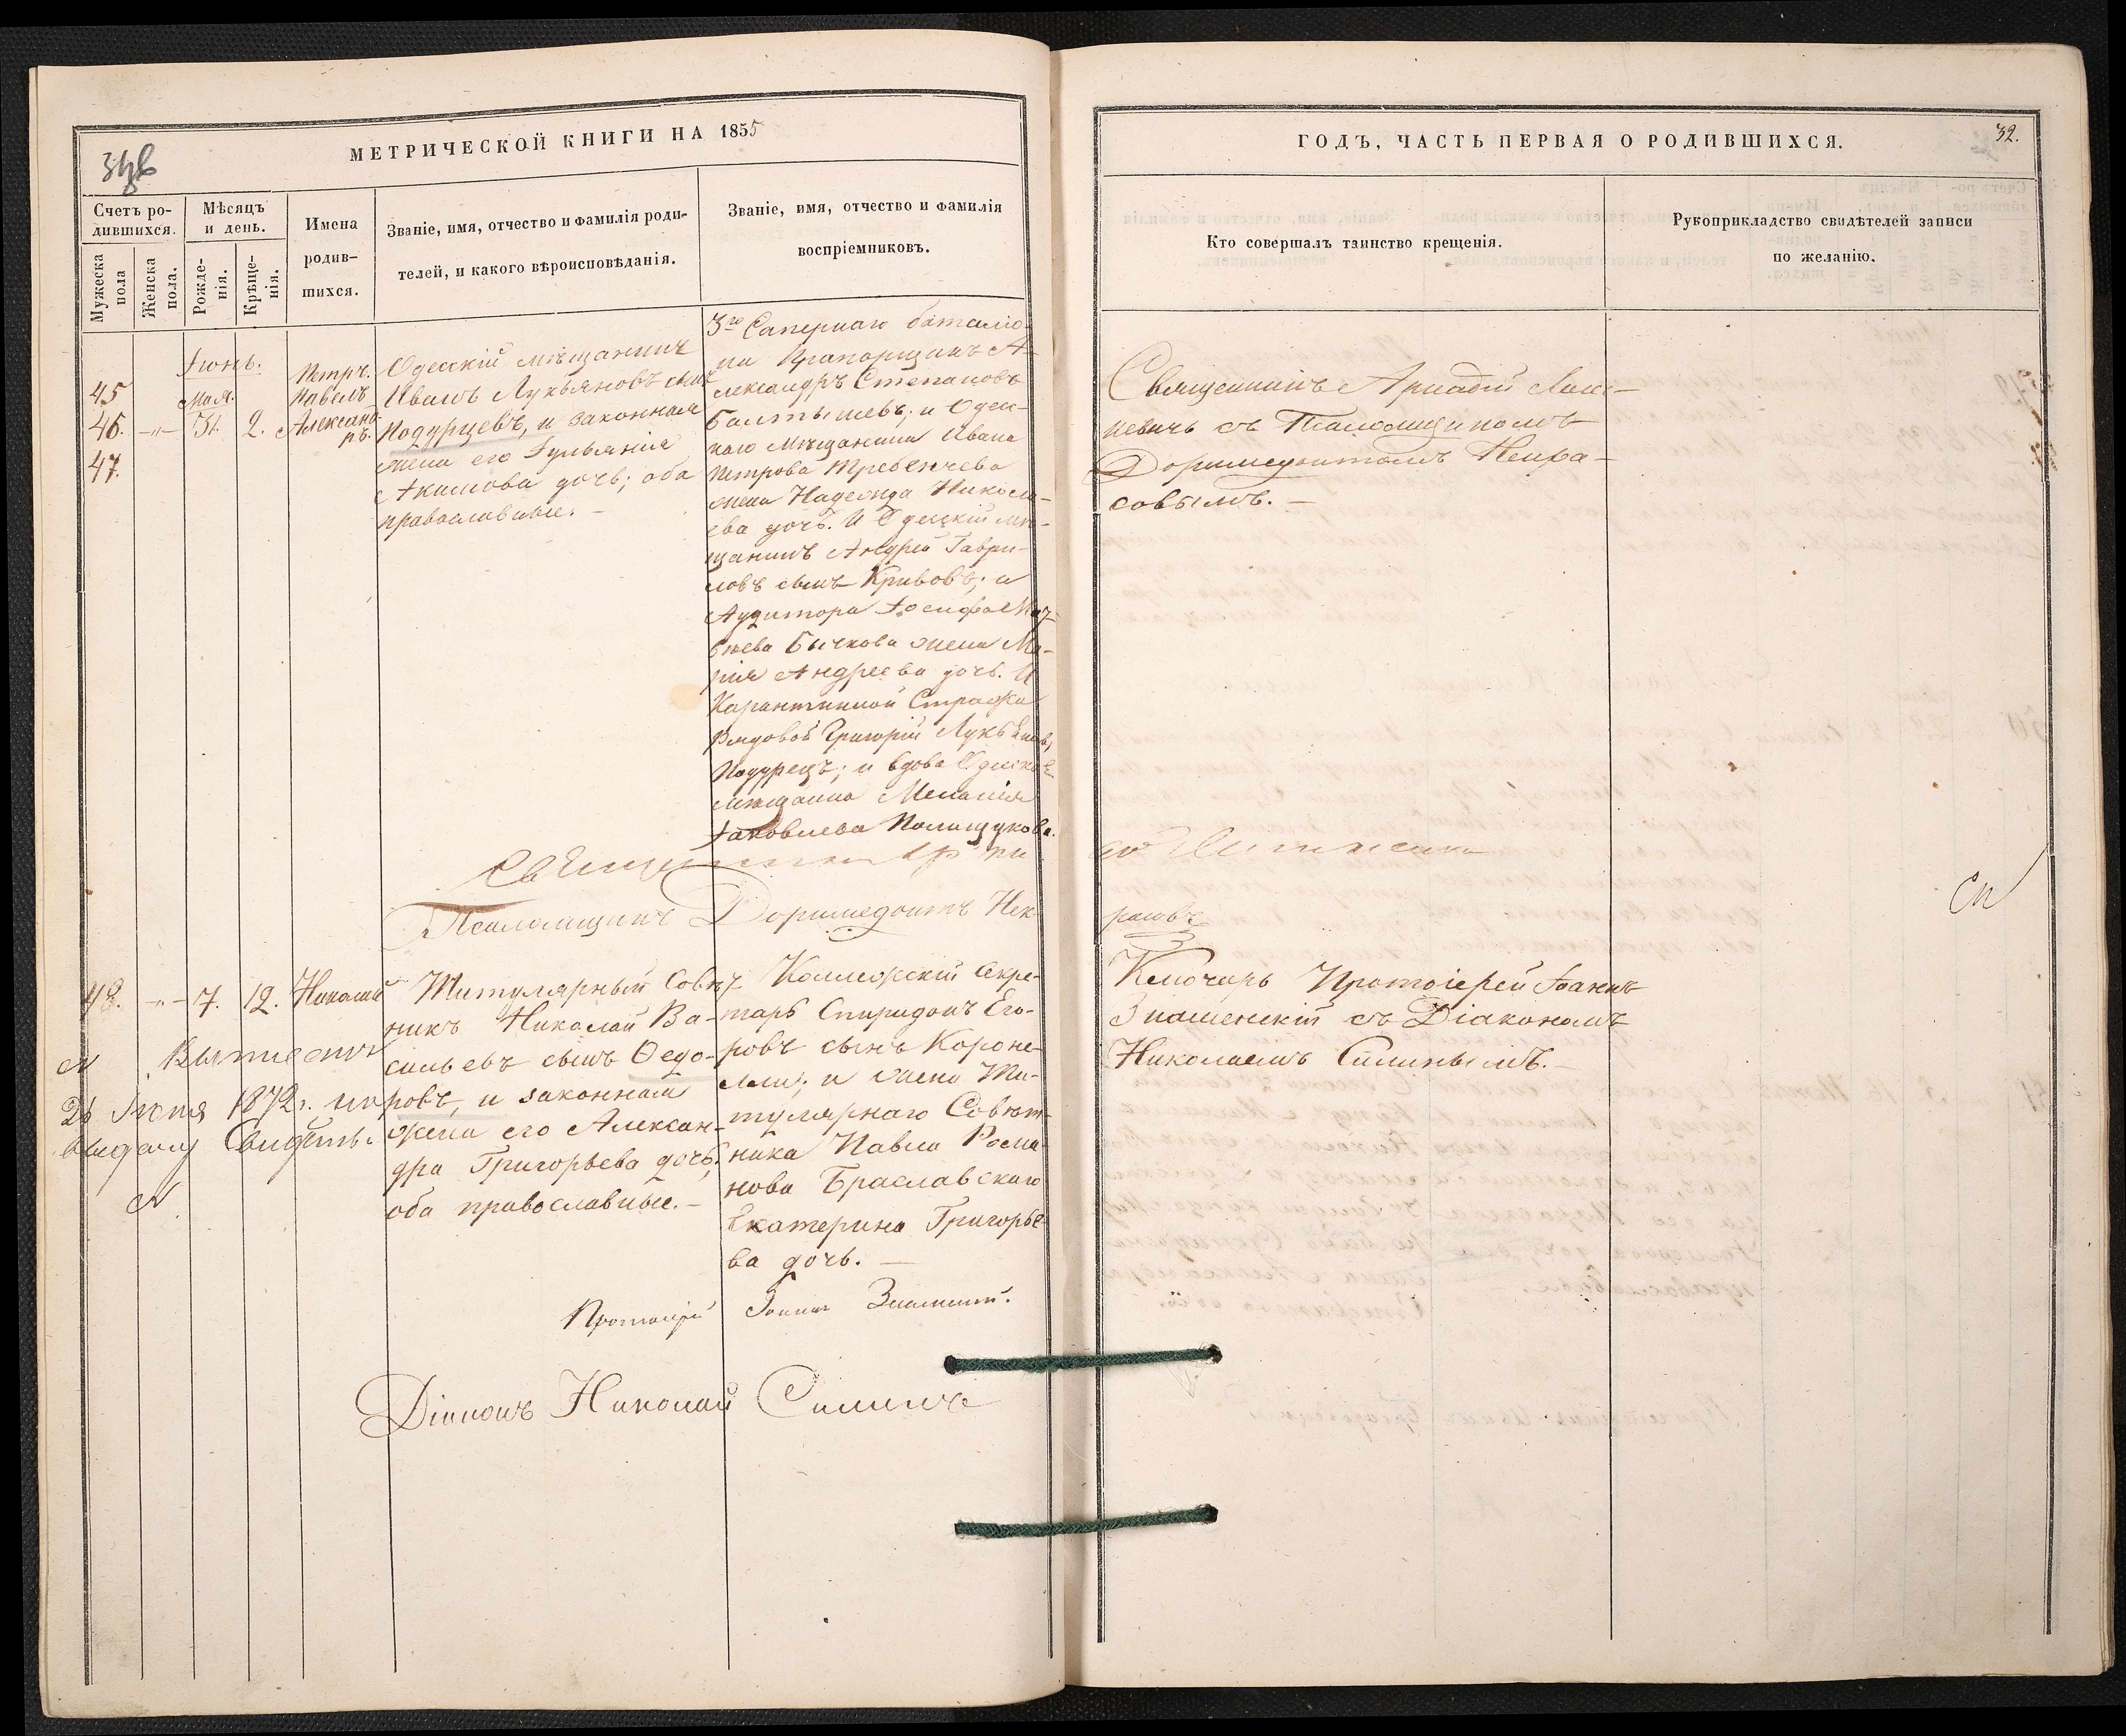 МЕТРИЧЕСКОЙ КНИГИ НА 1855
ГОДЪ, ЧАСТЬ ПЕРВАЯ О РОДИВШИХСЯ.
32.
Счетъ ро-
дившихся.
Мужеска пола
Женска пола.
Мѣсяцъ
и день.
Рожде-
нія.
Крѣще-
нія.
Имена
родив-
шихся.
Званіе, имя, отчество и фамилія роди-
телей, и какого вѣроисповѣданія.
Званіе, имя, отчество и фамилія
воспріемниковъ.
Кто совершалъ таинство крещенія.
Рукоприкладство свидѣтелей записи
по желанію.
Іюнь.
45
46.
47.
Мая.
31.
2.
Петръ.
Павелъ
Александ-
ръ.
Одесскій мѣщанинъ
Иванъ Лукьяновъ сынъ
Подурцевъ, и законная
жена его Іульянія
Акимова дочь; оба
православные. —
3го Сапернаго баталіо-
на Прапорщикъ А-
лександръ Степановъ
Балтышевъ; и Одес-
каго мѣщанина Ивана
Петрова
жена Надежда Никола-
ева дочь. И Одесскій мѣ-
щанинъ Андрей Гаври-
ловъ сынъ Кривовъ; и
Аудитора Іосифа
Бычкова жена Ма-
рія Андреева дочь. И
Карантинной Стражи
Рядовой Григорій Лукьяновъ
Подурецъ; и вдова Одеская
мѣщанка Меланія
Іаковлева Полищукова.
Священникъ Аркадій
съ Псаломщикомъ
Доримедонтомъ Некра-
совымъ. —
Псаломщикъ Доримедонтъ Нек-
расовъ
48.
7.
12.
Николай
Титулярный Совѣт-
никъ Николай Ва-
сильевъ сынъ Ѳедо-
ровъ, и законная
жена его Алексан-
дра Григорьева дочь,
оба православные. —
Коллежскій Секре-
тарь Спиридонъ Его-
ровъ сынъ Короне-
лли; и жена Ти-
тулярнаго Совѣт-
ника Павла Рома-
нова Браславскаго
Екатерина Григорье-
ва дочь. —
Ключарь Протоіерей Іоаннъ
Знаменскій съ Діакономъ
Николаемъ Силинымъ. —
Іюня 1872 г.
Протоіерей Іоаннъ Знаменск.
Діаконъ Николай Силинъ